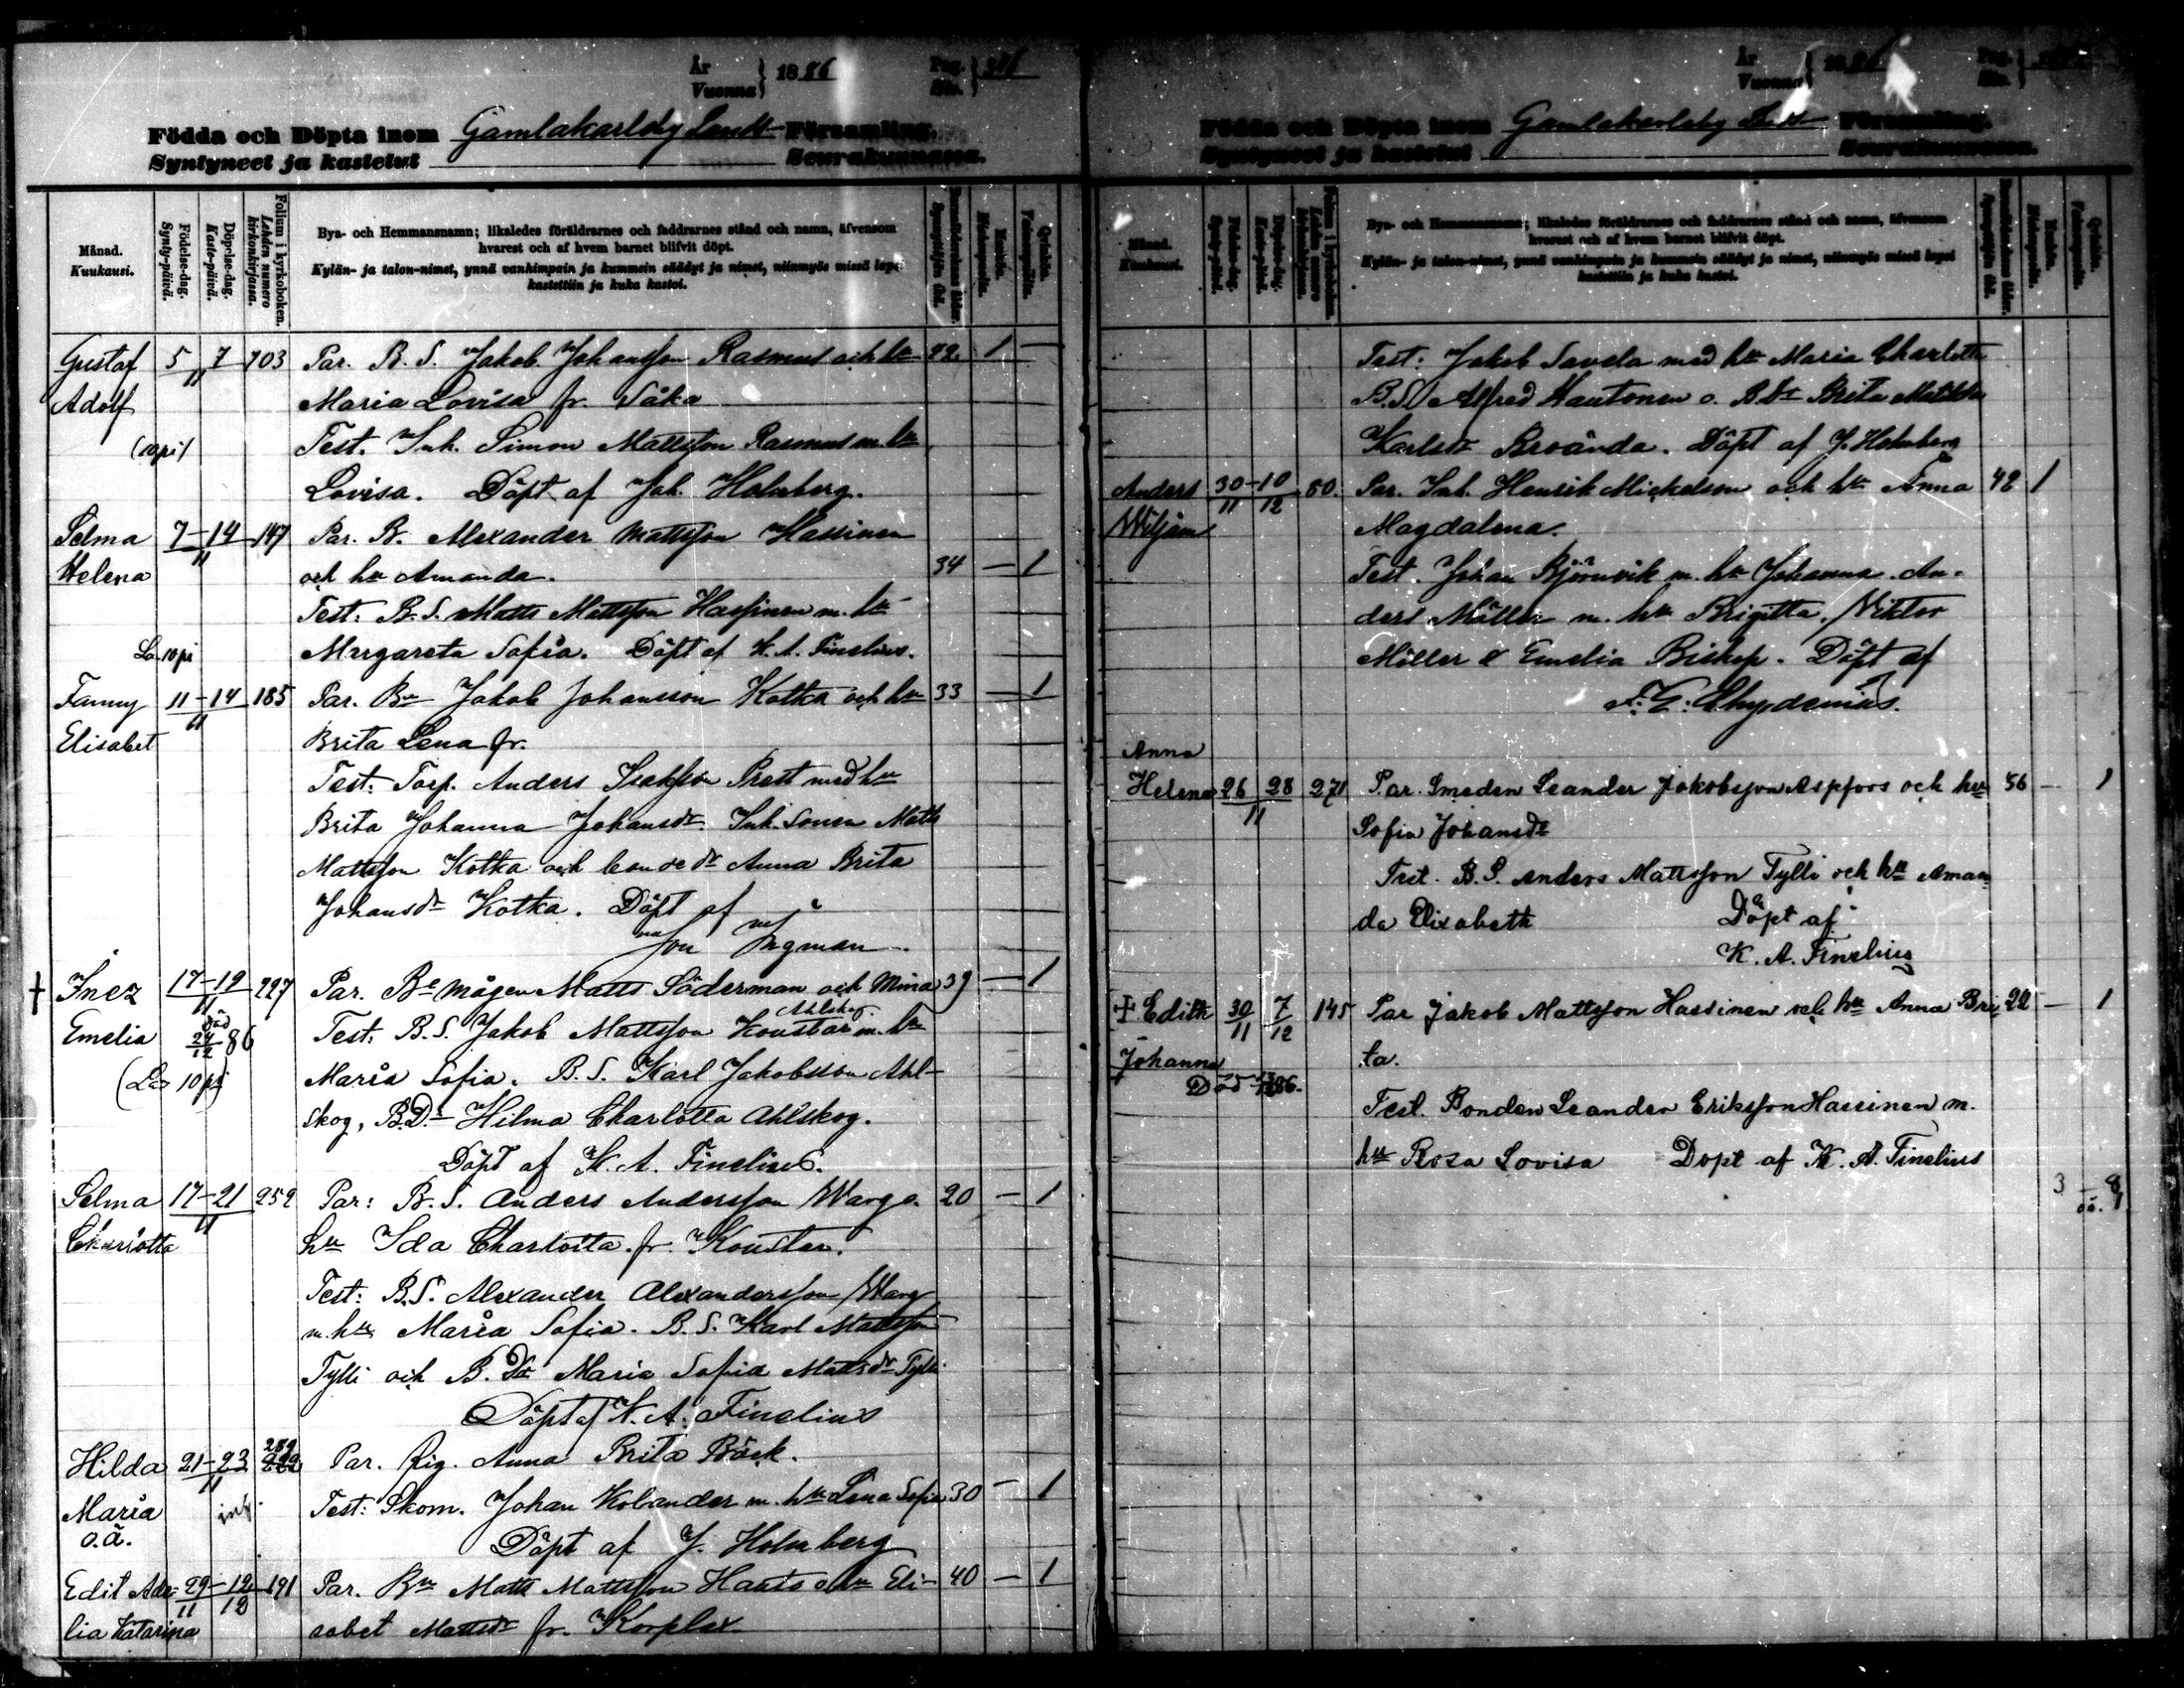 År
Vuonna } 1886
Pag.
Siv. } 316
Födda och Döpta inom Gamlakarleby Landt Församling.
Syntyneet ja kastetut Seurakunnassa.
Månad.
Kuukausi.
Födelse-dag.
Synty-päivä.
Döpelse-dag.
Kaste-päivä.
Folium i kyrkoboken.
Lehden numero kirkonkirjassa.
Bya- och Hemmansnamn; likaledes föräldrarnes och faddrarnes stånd och namn, äfvensom
hvarest och af hvem barnet blifvit döpt.
Kylän- ja talon-nimet, ynnä vanhimpain ja kummein säädyt ja nimet, niinmyös missä lapsi
kastettiin ja kuka kastoi.
Barnaföderskans ålder.
Synnyttäjän ikä.
Mankön.
Miehenpuolia.
Qvinkön.
Vaimonpuolia.
Gustaf 5 7 103 Par. B. S. Jakob Johansson Rasmus och hu 22. 1 —
11
Adolf Maria Lovisa fr. Såka
(10 pi) Test. Inh. Simon Mattsson Rasmus m. hu
Lovisa. Döpt af Joh. Holmberg.
Selma 7–14 147 Par. B. Alexander Mattsson Hassinen
11
Helena och hu Amanda. 34 — 1
Test: B. S. Matts Mattsson Hassinen m. hu
La. 10 pi Margareta Sofia. Döpt af K. A. Finelius.
Fanny 11–14 185 Par. Bn Jakob Johansson Kotka och hu 33 — 1
11
Elisabet Brita Lena fr.
Test: Torp. Anders Isaksson Prest med hu
Brita Johanna Johansdr. Inh. Sonen Matts
Mattsson Kotka och bondedr Anna Brita
Johansdr Kotka. Döpt af
Ingman.
† Inez 17–19 227 Par. Be mågen Matts Söderman och Mina 39 — 1
11
Ahlskog.
Emelia Död 24/12 86 Test: B. S. Jakob Mattsson Koustar m. hu
(La 10 pi) Maria Sofia. B. S. Karl Jakobsson Ahl-
skog, B.D. Hilma Charlotta Ahlskog.
Döpt af K. A. Finelius.
Selma 17–21 252 Par: B. S. Anders Andersson Warg o. 20 — 1
11
Charlotta hu Ida Charlotta fr. Koustar.
Test: B. S. Alexander Alexandersson Warg
m. hu Maria Sofia. B. S. Karl Mattsson
Tylli och B. Dr Maria Sofia Mattsdr Tylli.
Döpt af K. A. Finelius
289
Hilda 21–23 Par. Pig. Anna Brita Böck.
11
Maria Test: Skom. Johan Kolander m. hu Lena Sofia 30 — 1
o.ä. Döpt af J. Holmberg
Edit Ade= 29–12 191 Par. Bn Matts Mattsson Hauts o. hu Eli- 40 — 1
11 12
lia Katarina sabet Mattsdr fr. Korplax
År
Vuonna } 1886
Pag.
Siv. }
Födda och Döpta inom Gamlakarleby Landt Församling.
Syntyneet ja kastetut Seurakunnassa.
Månad.
Kuukausi.
Födelse-dag.
Synty-päivä.
Döpelse-dag.
Kaste-päivä.
Folium i kyrkoboken.
Lehden numero kirkonkirjassa.
Bya- och Hemmansnamn; likaledes föräldrarnes och faddrarnes stånd och namn, äfvensom
hvarest och af hvem barnet blifvit döpt.
Kylän- ja talon-nimet, ynnä vanhimpain ja kummein säädyt ja nimet, niinmyös missä lapsi
kastettiin ja kuka kastoi.
Barnaföderskans ålder.
Synnyttäjän ikä.
Mankön.
Miehenpuolia.
Qvinkön.
Vaimonpuolia.
Test: Jakob Savela med hu Maria Charlotta
B. S. Alfred Hautonen o. B. Dr Brita Matilda
Karlsdr Broända. Döpt af J. Holmberg
Anders 30–10 60. Par. Inh. Henrik Mickelson och hu Anna 42 1
11 12
Wiljam Magdalena.
Test. Johan Björnvik m. hu Johanna. An-
ders Möller m. hu Brigitta. Viktor
Möller & Emelia Biskop. Döpt af
F. G. Chydenius.
Anna
Helena 26 28 271 Par. Smeden Leander Jakobsson Aspfors och hu 36 — 1
11
Sofia Johansdr
Test. B. S. Anders Mattsson Tylli och hu Aman
da Elisabeth Döpt af
K. A. Finelius
† Edith 30 7 145 Par Jakob Mattsson Hassinen och hu Anna Bri 22 — 1
11 12
Johanna ta.
Död 86.
Test. Bonden Leander Eriksson Hassinen m.
hu Rosa Lovisa Döpt af K. A. Finelius
3 — 8
oä. 1